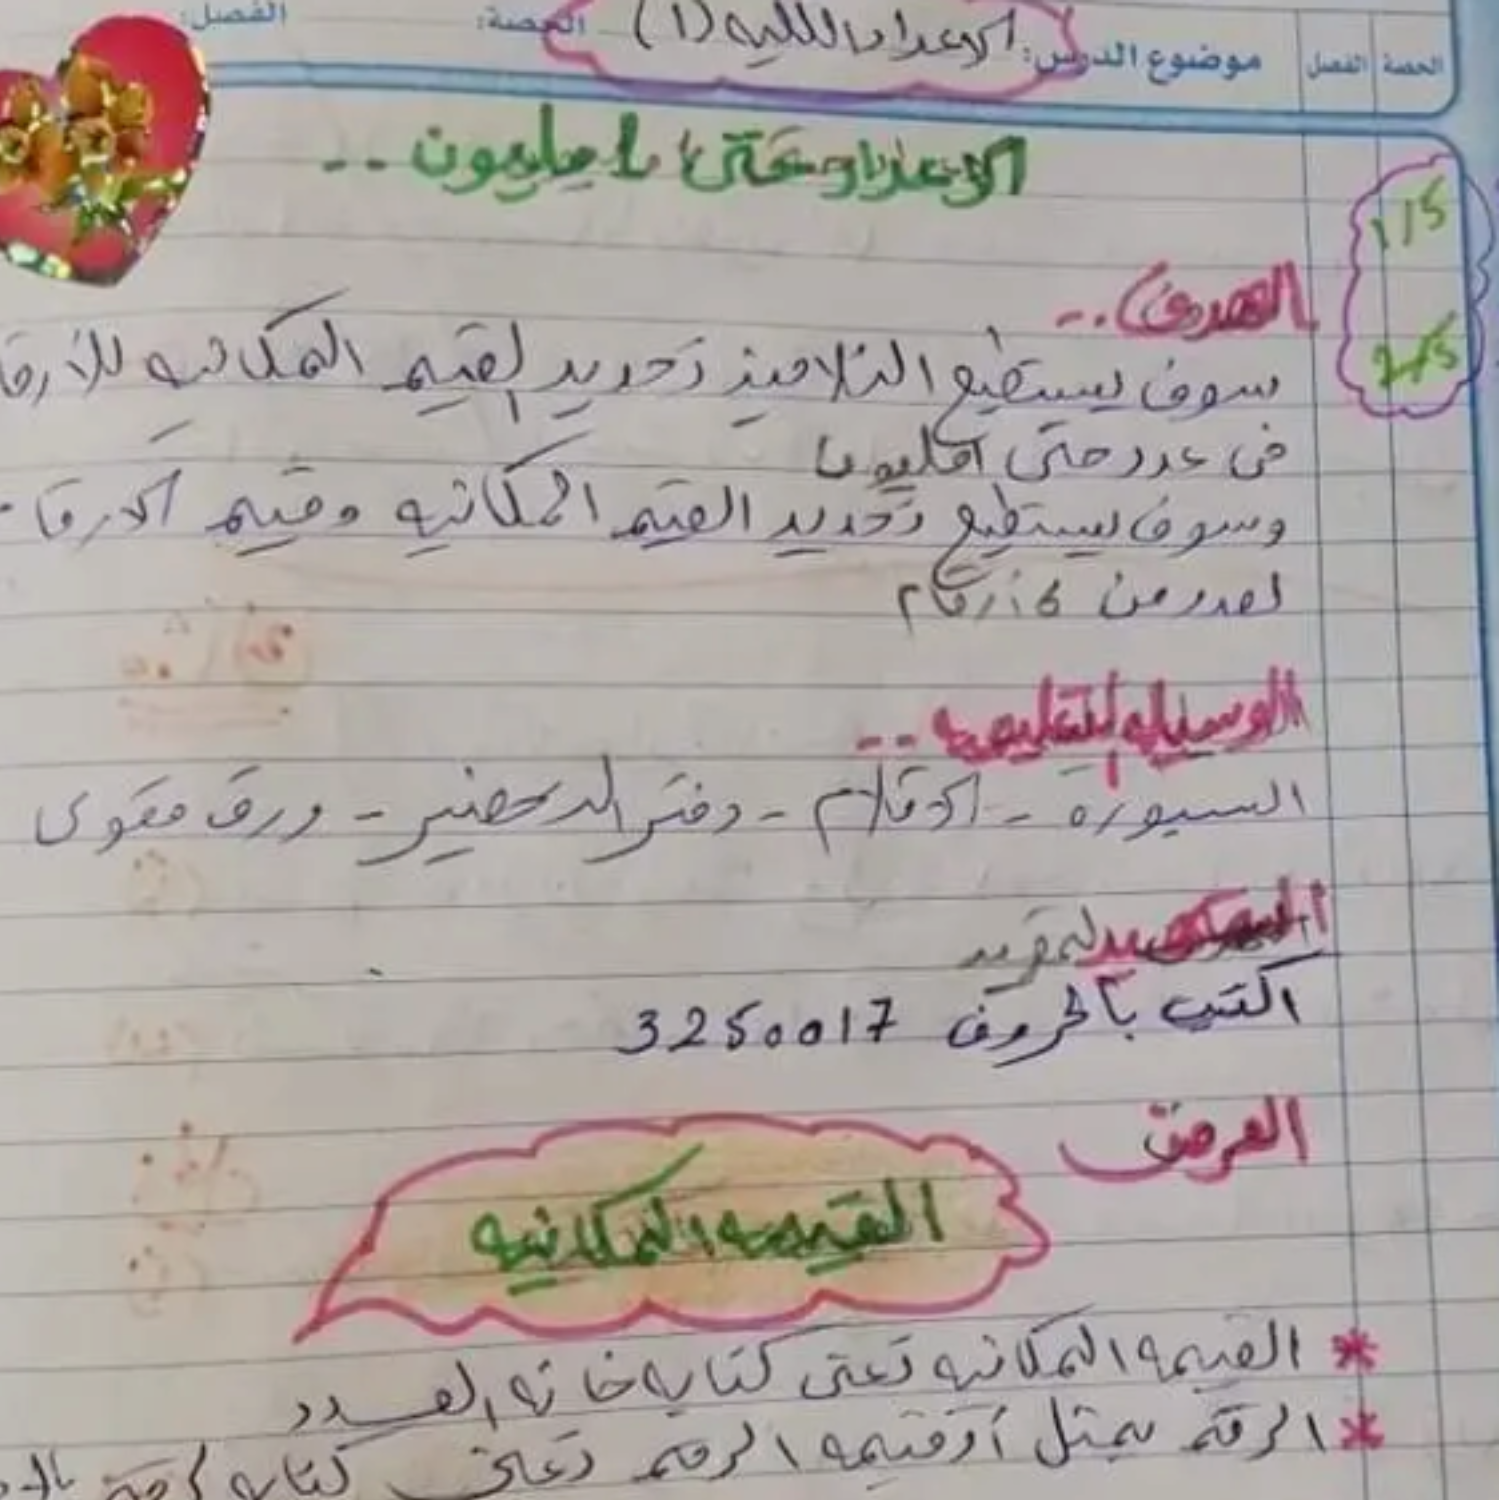 الحصة الفصل موضوع الدرس: الاعداد الكليه (1) الحصة: الفصل:
الاعداد حتى 1 مليون --
1/5
2/5
الهدف --
سوف يستطيع التلاميذ تحديد لقيم المكانيه للأرقا
فى عدد حتى 1 مليون
وسوف يستطيع تحديد القيم المكانيه وقيم الارقا
لعدد من 6 أرقام
الوسيله التعليميه --
السبوره - الاقلام - دفتر التحضير - ورق مقوى
اكتب بالحروف 3250017
العرض
القيمه المكانيه
* القيمه المكانيه تعنى كتابه خانه العدد
* الرقم يمثل أو قيمه الرقم تعنى كتابه